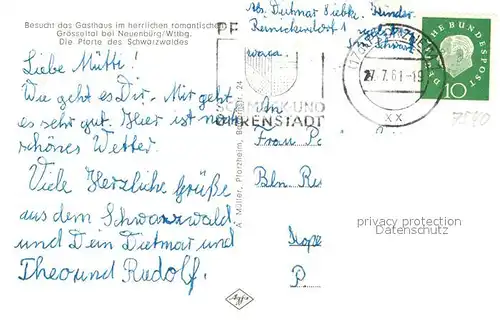 Besucht das Gasthaus im herrlichen romantischen
Grösseltal bei Neuenbürg/Wttbg.
Die Pforte des Schwarzwaldes
Liebe Mutti!
Wie geht es Dir. Mir geht
es sehr gut. Hier ist noch
schönes Wetter.
Viele Herzliche Grüße
aus dem Schwarzwald
und Dein Dietmar und
Theo und Rudolf.
A. Müller, Pforzheim,
24
Abs. Dietmar Liebke,
Reinickendorf 1
PF
SCHMUCK- UND
UHRENSTADT
27.7.61.-18
xx
DEUTSCHE BUNDESPOST
10
7540
An
Frau
Bln
P.
Agfa
privacy protection
Datenschutz